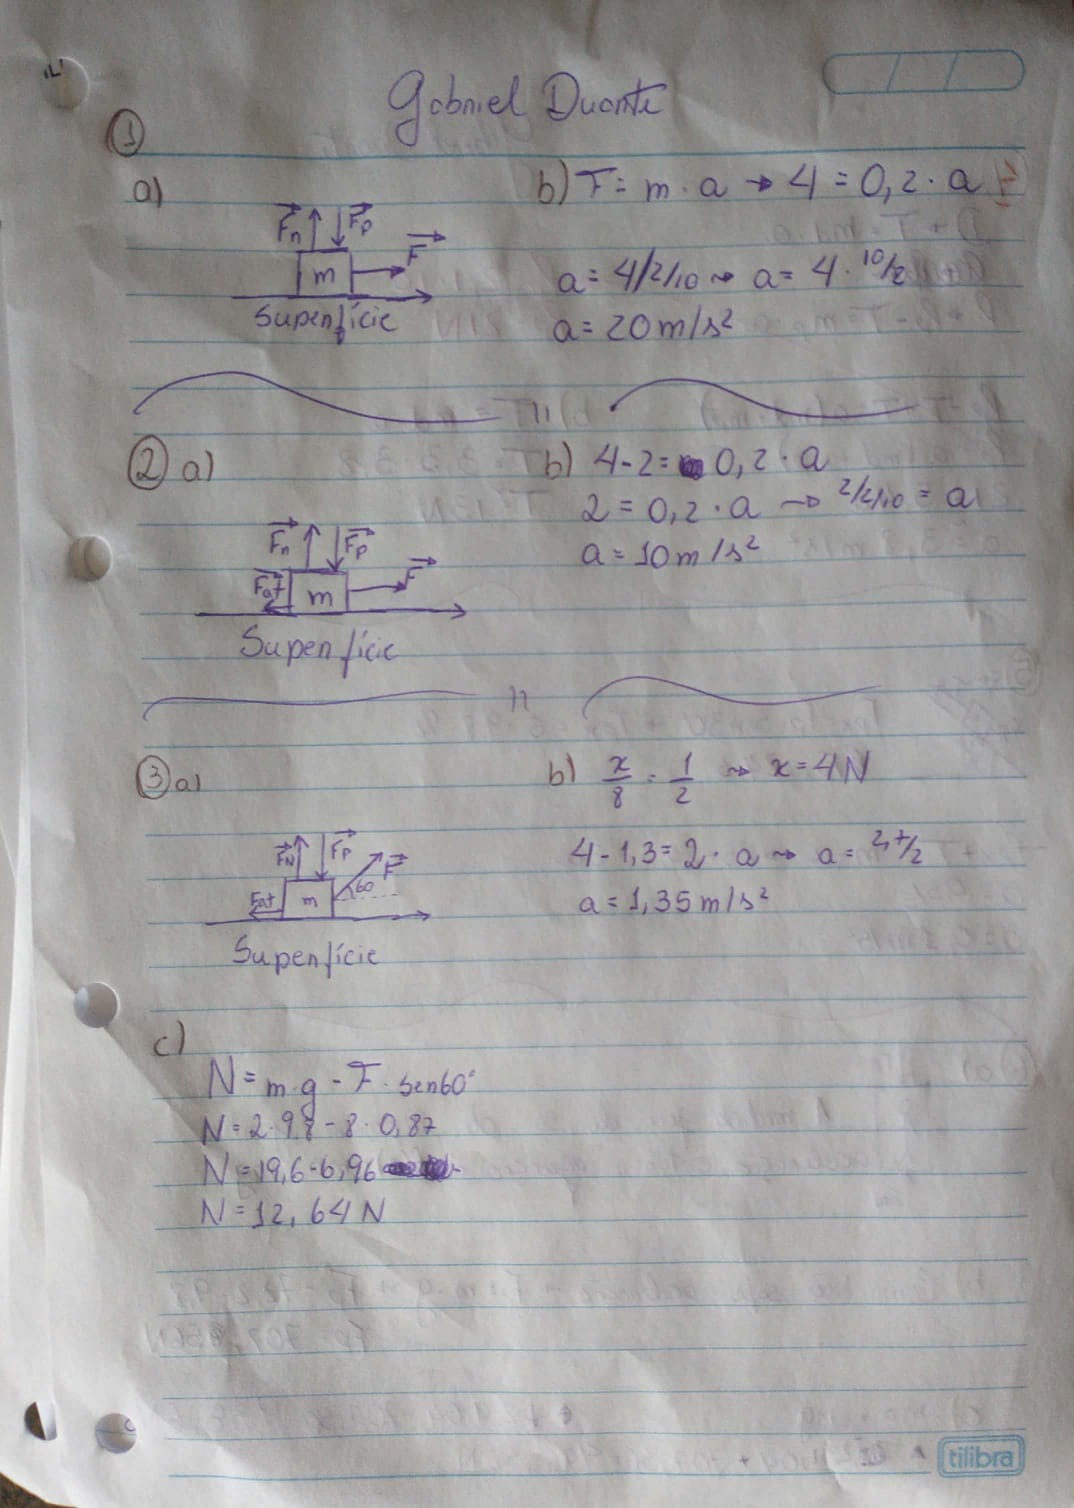 Gabriel Duarte
1
a)
Fn Fp
F
m
Superfície
b) F = m · a → 4 = 0,2 · a
a = 4/2/10 → a = 4 · 10/2
a = 20 m/s²
2 a)
Fn Fp
Fat F
m
Superfície
b) 4-2 = 0,2 · a
2 = 0,2 · a → 2/2/10 = a
a = 10 m/s²
3 a)
FN Fp
F
Fat m 60
Superfície
b) x/8 = 1/2 → x = 4N
4 - 1,3 = 2 · a → a = 2,7/2
a = 1,35 m/s²
c)
N = m·g - F · sen60°
N = 2·9,8 - 8 · 0,87
N = 19,6 - 6,96
N = 12,64 N
tilibra